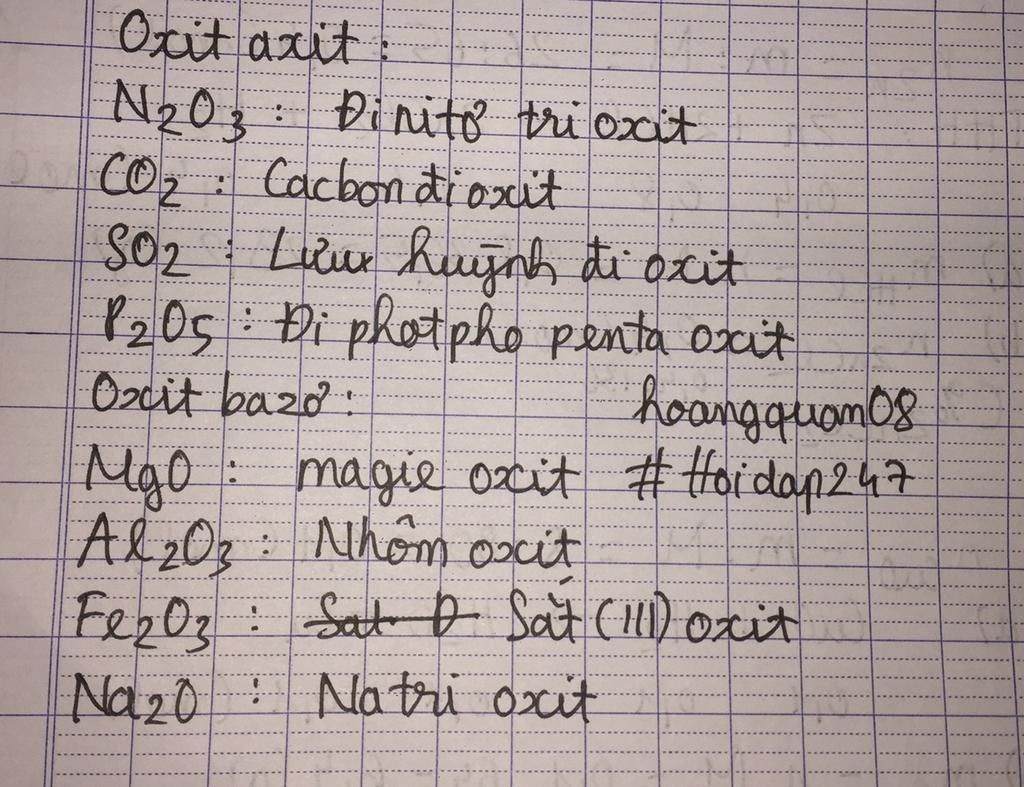 Oxit axit :
N2O3 : Đinitơ trioxit
CO2 : Cacbon đioxit
SO2 : Lưu huỳnh đi oxit
P2O5 : Đi photpho penta oxit
Oxit bazơ : hoangquan08
MgO : magie oxit # Hoidap247
Al2O3 : Nhôm oxit
Fe2O3 : Sat Đ Sắt (III) oxit
Na2O : Natri oxit